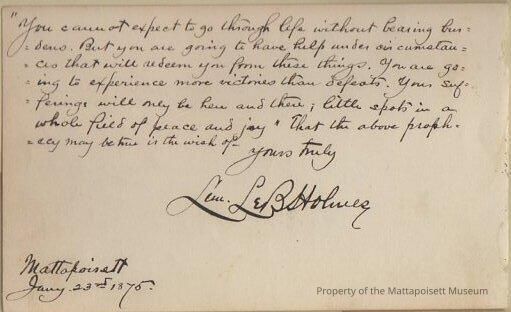 "You cannot expect to go through life without bearing bur-
"dens. But you are going to have help under circumstan-
"ces that will redeem you from these things. You are go-
"ing to experience more victories than defeats. Your suf-
"ferings will only be here and there; little spots in a
whole field of peace and joy" That the above proph-
-ecy may be true is the wish of-
Yours truly
Lem. LeB Holmes
Mattapoisett
Jany. 23rd 1875.
Property of the Mattapoisett Museum